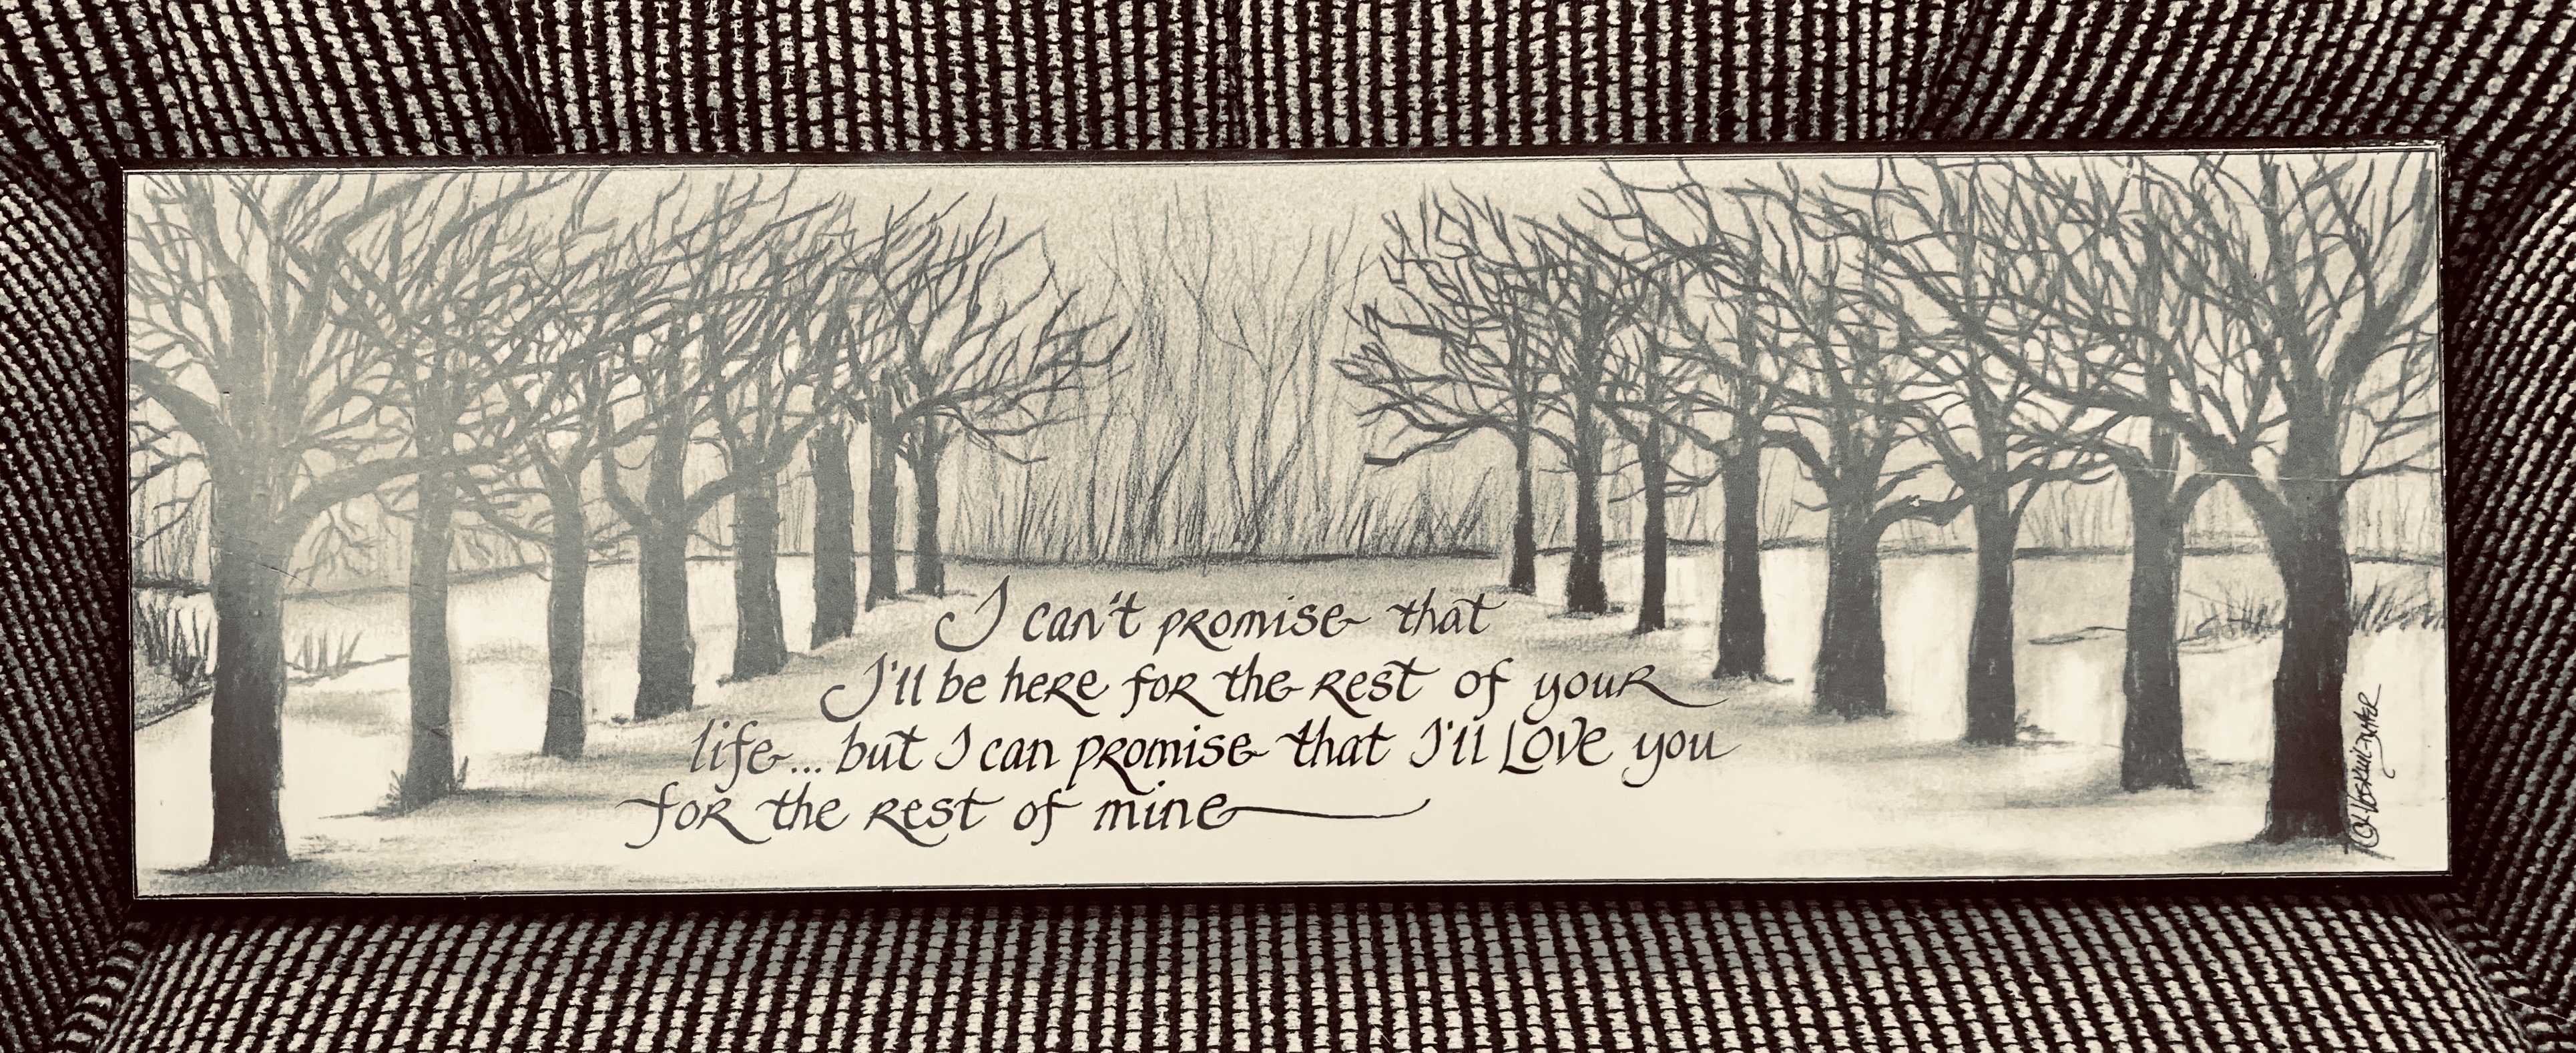 I can't promise that
I'll be here for the rest of your
life... but I can promise that I'll Love you
for the rest of mine